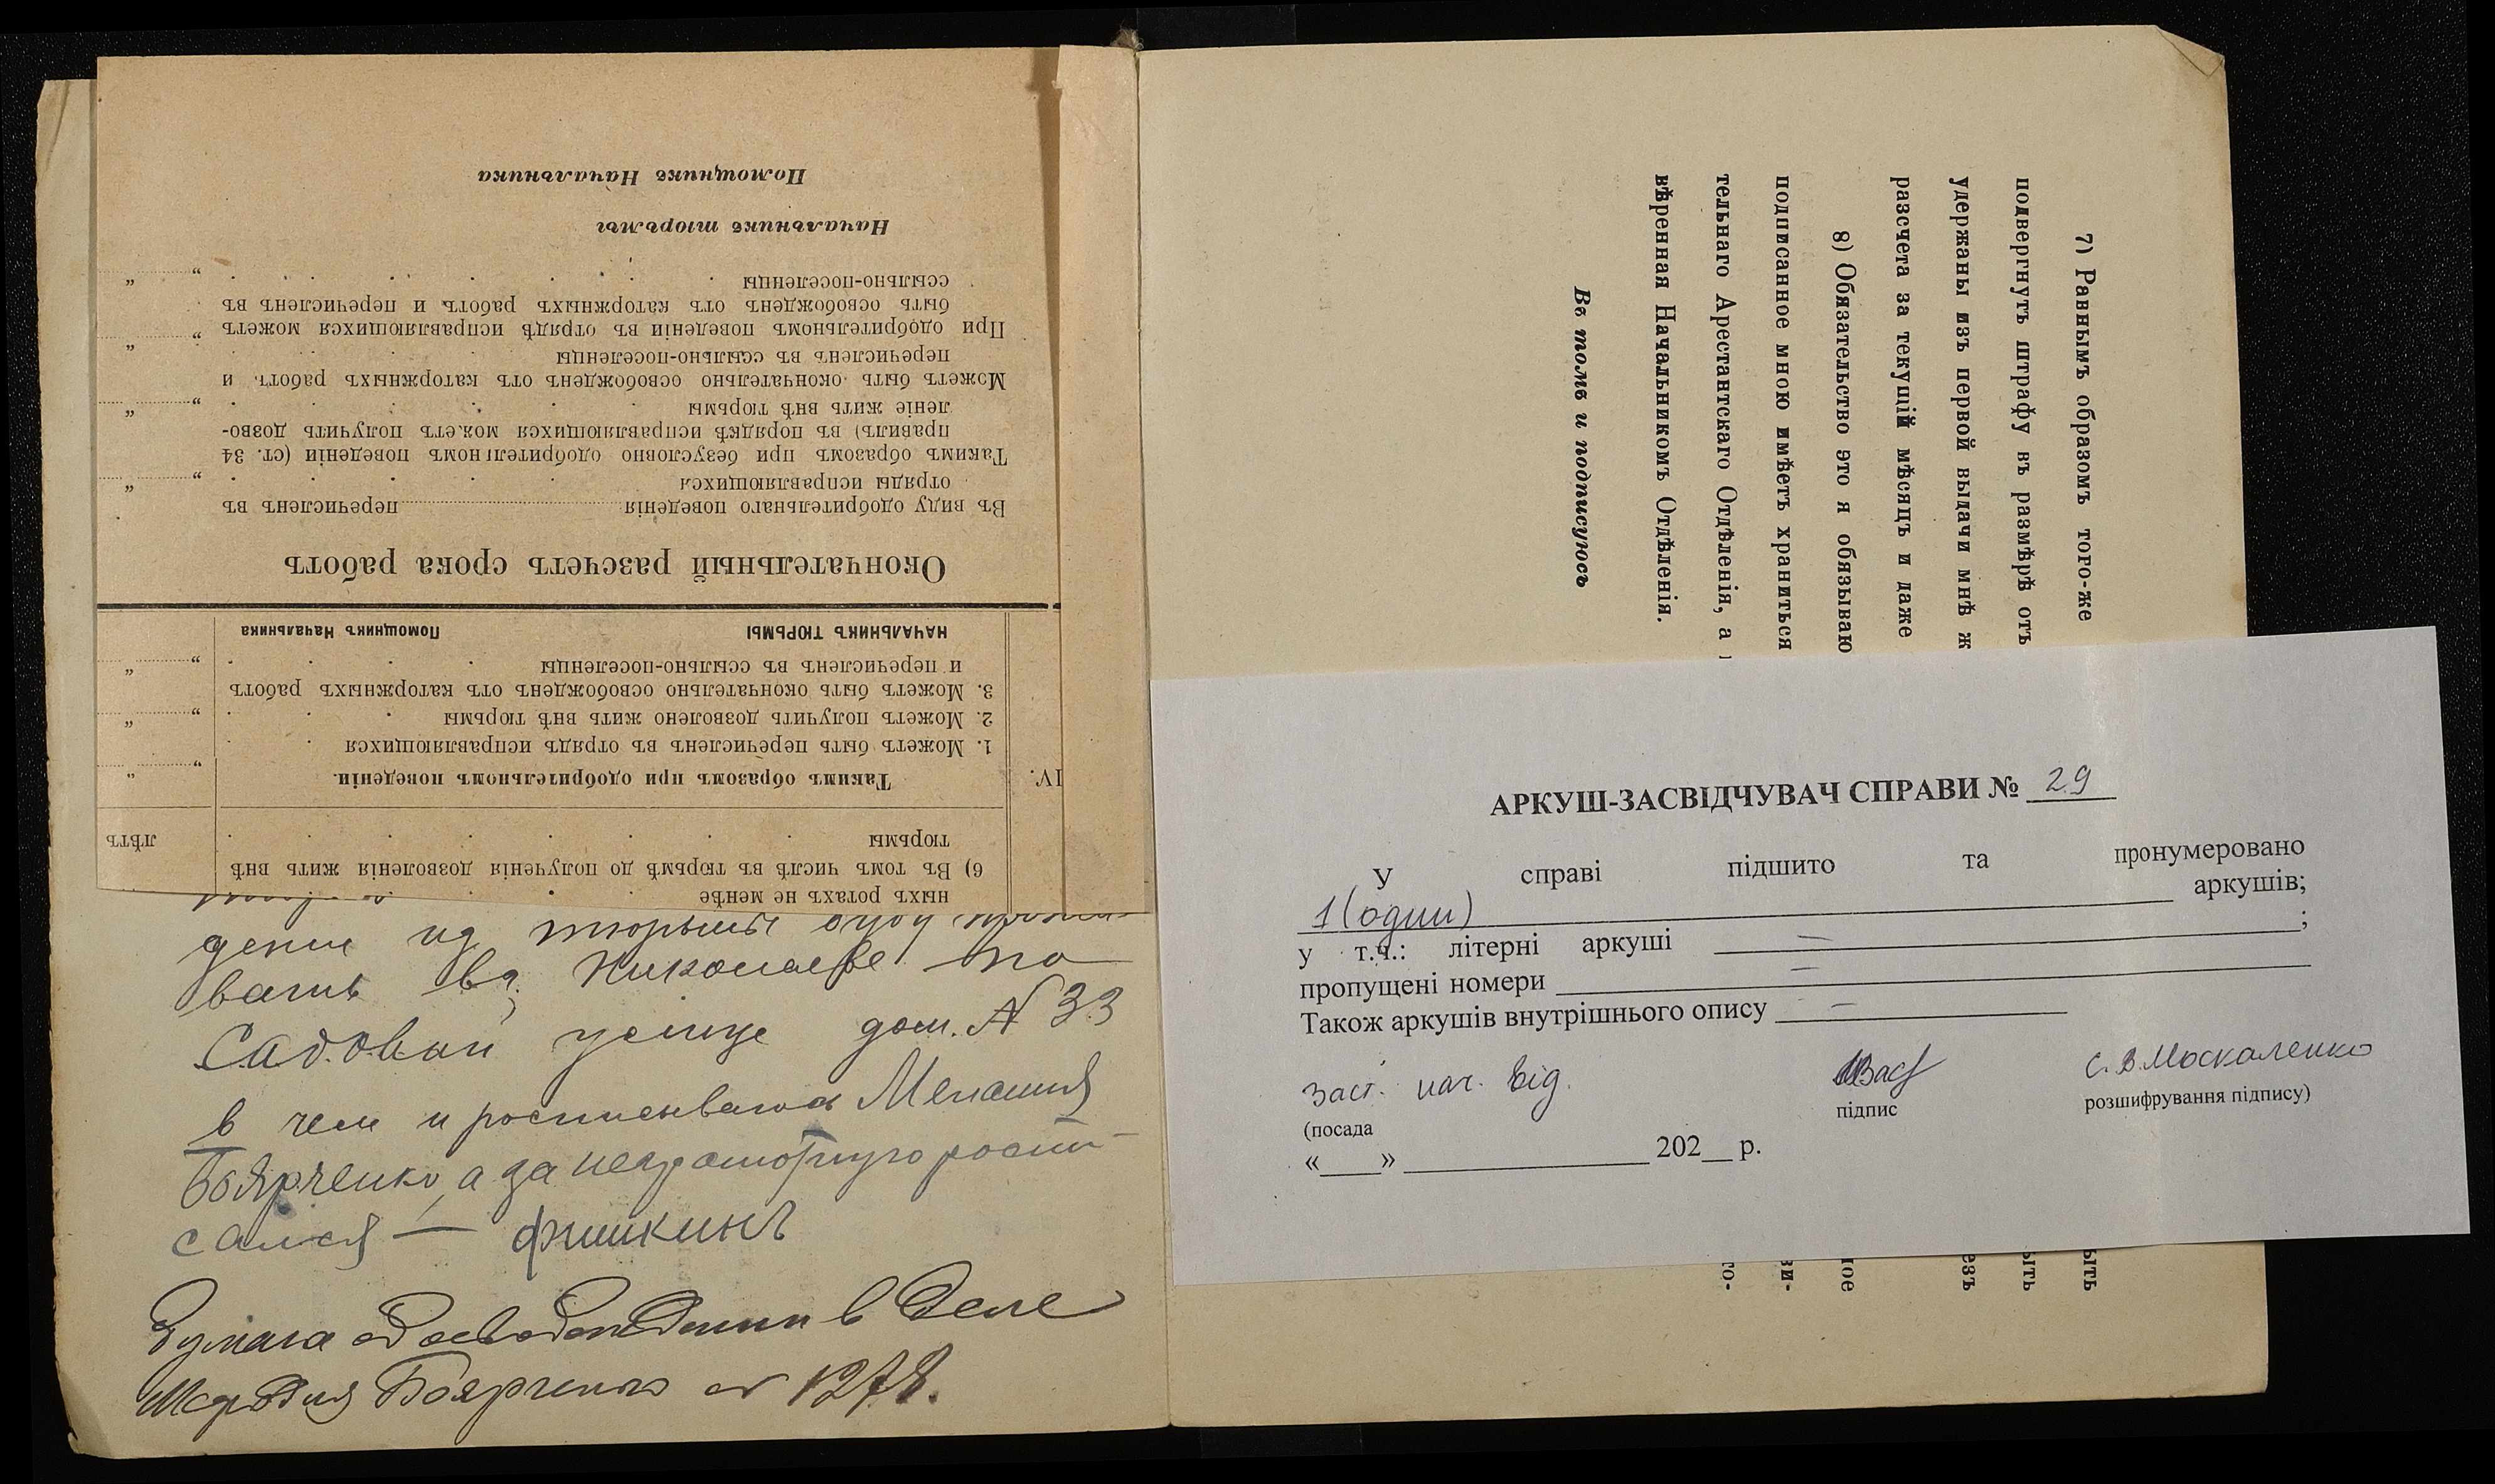 ныхъ ротахъ не менѣе
6) Въ томъ числѣ въ тюрьмѣ до полученія дозволенія жить внѣ
тюрьмы
лѣтъ
IV.
Такимъ образомъ при одобрительномъ поведеніи.
1. Можетъ быть перечисленъ въ отрядъ исправляющихся
2. Можетъ получить дозволено жить внѣ тюрьмы
3. Можетъ быть окончательно освобожденъ отъ каторжныхъ работъ
и перечисленъ въ ссыльно-поселенцы
НАЧАЛЬНИКЪ ТЮРЬМЫ Помощникъ Начальника
Окончательный разсчетъ срока работъ
Въ виду одобрительнаго поведенія перечисленъ въ
отряды исправляющихся
Такимъ образомъ при безусловно одобрительномъ поведеніи (ст. 34
правилъ) въ порядкѣ исправляющихся можетъ получить дозво-
леніе жить внѣ тюрьмы
Можетъ быть окончательно освобожденъ отъ каторжныхъ работъ и
перечисленъ въ ссыльно-поселенцы
При одобрительномъ поведеніи въ отрядѣ исправляющихся можетъ
быть освобожденъ отъ каторжныхъ работъ и перечисленъ въ
ссыльно-поселенцы
Начальникъ тюрьмы
Помощникъ Начальника
дении из тюрьмы буду
вать в г. Николаеве по
Садовой улице дом. № 33
в чем и росписываюсь
Боярченко, а за неграмотную роспи
сался — Фишкинъ
Бумага о освобождении в деле
Боярченко № 1278.
7) Равнымъ образомъ того-же
ыть
подвергнуть штрафу въ размѣрѣ отъ
ыть
удержаны изъ первой выдачи мнѣ ж
езъ
разсчета за текущій мѣсяцъ и даже
8) Обязательство это я обязываю
ное
подписанное мною имѣетъ храниться
ви-
тельнаго Арестантскаго Отдѣленія, а
го-
вѣренная Начальникомъ Отдѣленія.
Въ томъ и подписуюсь
АРКУШ-ЗАСВІДЧУВАЧ СПРАВИ № 29
У справі підшито та пронумеровано
1 (один) аркушів;
у т.ч.: літерні аркуші — ;
пропущені номери —
Також аркушів внутрішнього опису —
Заст. нач. від. С.В. Москаленко
(посада підпис розшифрування підпису)
«____» ____________ 202__ р.